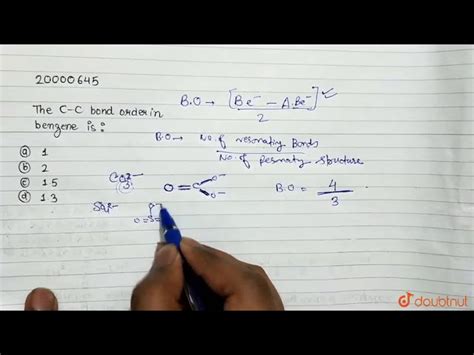 20000645
The C-C bond order in
benzene is:
(a) 1
(b) 2
(c) 1.5
(d) 1.3
B.O → [Be⁻ - A.Be⁻] / 2
B.O → No. of resonating Bonds
No. of structure
CO₃²⁻
O = C O⁻ O⁻
B.O = 4 / 3
O = S =
doubtnut